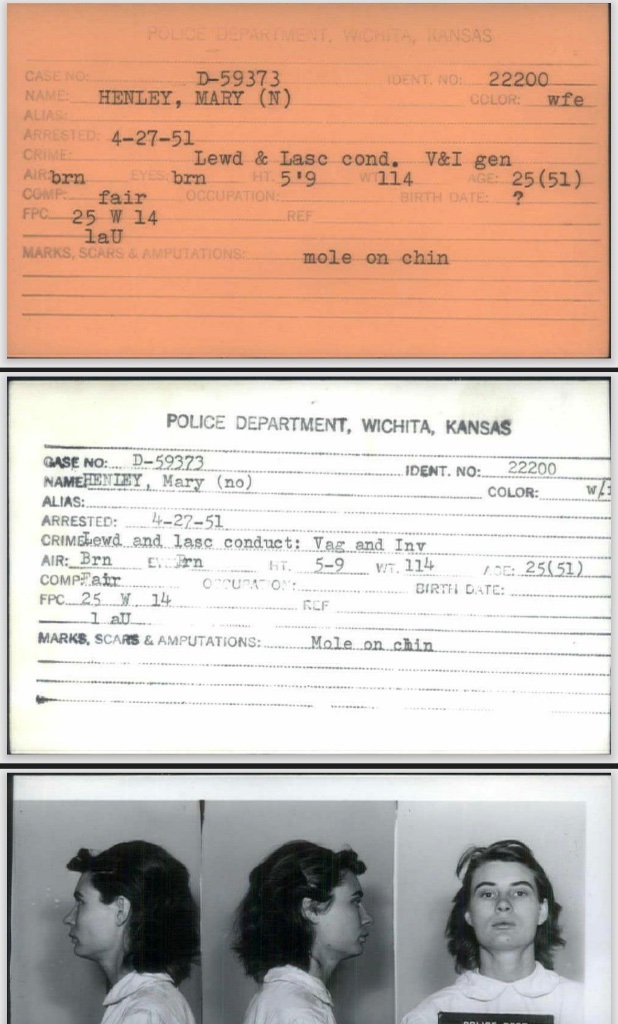 POLICE DEPARTMENT, WICHITA, KANSAS
CASE NO: D-59373 IDENT. NO: 22200
NAME: HENLEY, MARY (N) COLOR: wfe
ALIAS:
ARRESTED: 4-27-51
CRIME: Lewd & Lasc cond. V&I gen
AIR: brn EYES: brn HT. 5'9 WT 114 AGE: 25(51)
COMP: fair OCCUPATION: BIRTH DATE: ?
FPC 25 W 14 REF
1aU
MARKS, SCARS & AMPUTATIONS: mole on chin
POLICE DEPARTMENT, WICHITA, KANSAS
CASE NO: D-59373 IDENT. NO: 22200
NAME HENLEY, Mary (no) COLOR:
ALIAS:
ARRESTED: 4-27-51
CRIME Lewd and lasc conduct: Vag and Inv
AIR: Brn Brn HT. 5-9 WT. 114 AGE: 25(51)
COMP Fair OCCUPATION: BIRTH DATE:
FPC 25 W 14 REF
1 aU
MARKS, SCARS & AMPUTATIONS: Mole on chin